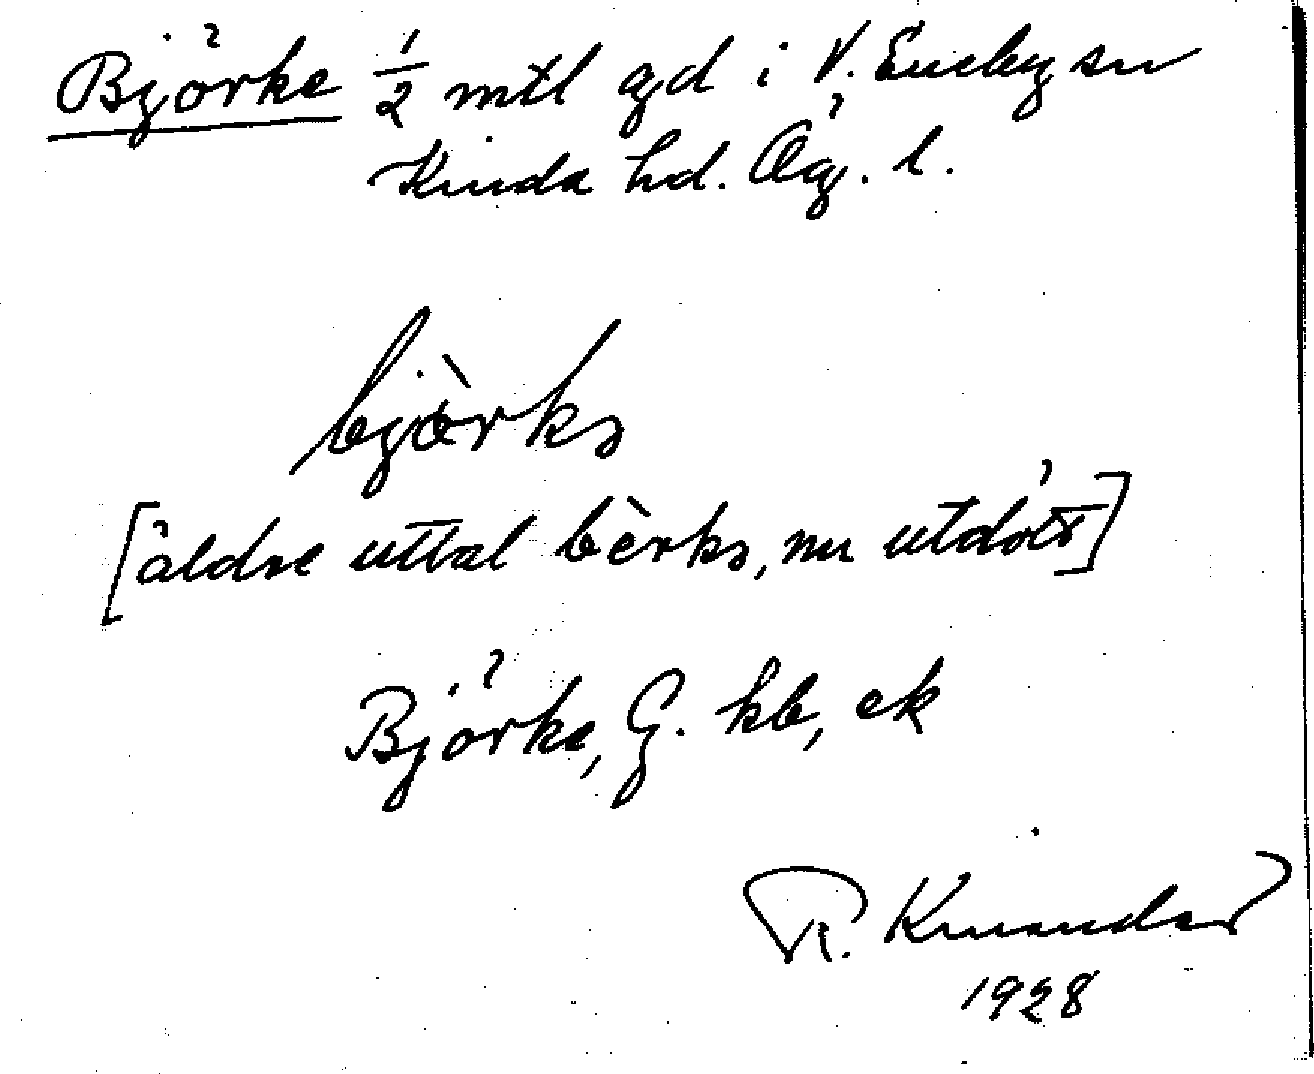 Björke 1/2 mtl gd i V. Eneby sn
Kinda hd. Ög. l.
bjòrkə
[äldre uttal bèrkə, nu utdött]
Björke, G. kb, ek
R. Kinander
1928